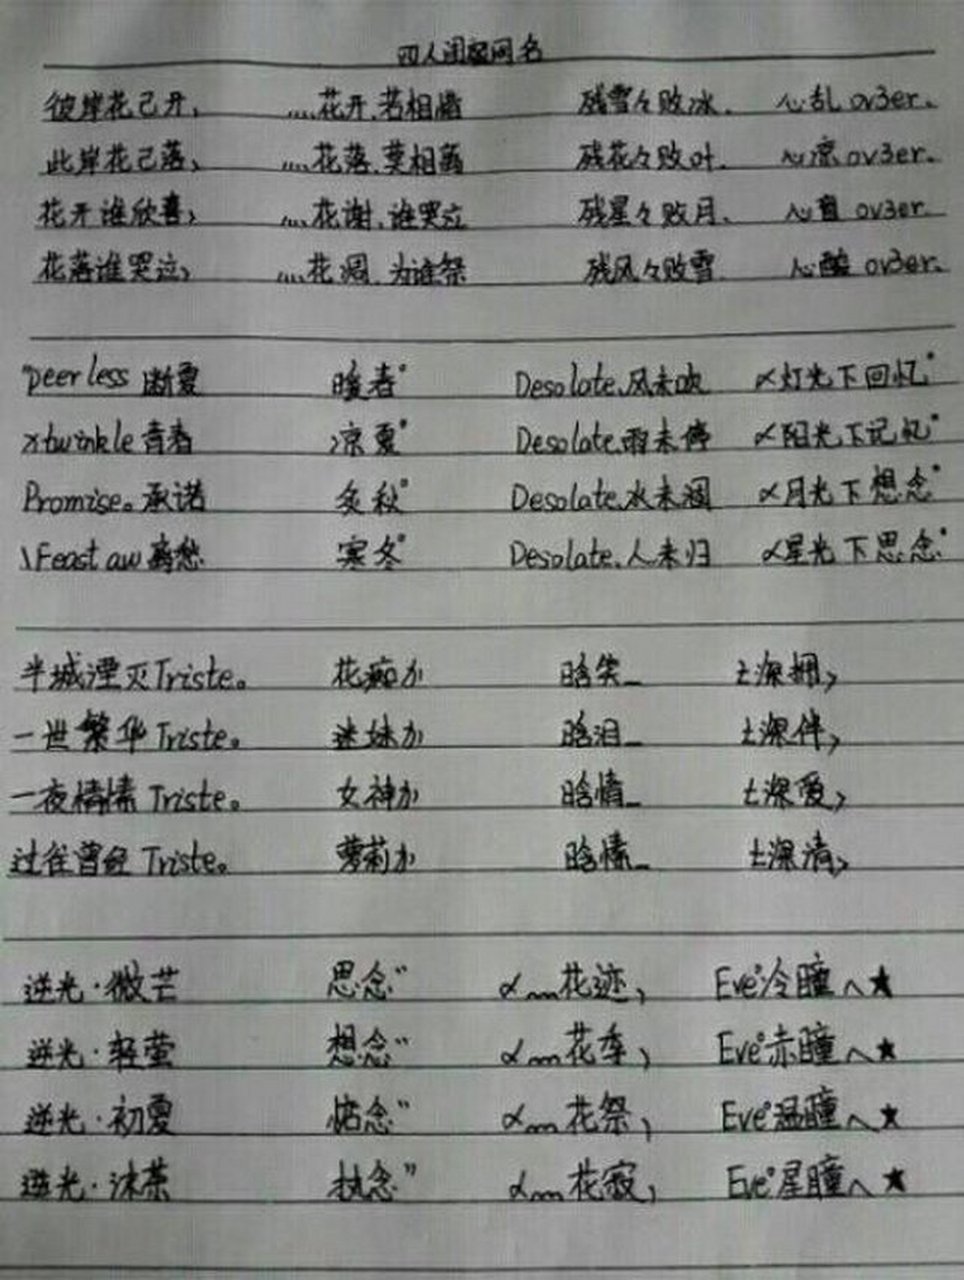 四人闺蜜网名
彼岸花己开、 ....花开.若相惜 残雪々败冰. 心乱 ov3er.
此岸花己落、 ....花落.莫相离 残花々败叶. 心凉 ov3er.
花开谁欣喜、 ....花谢.谁哭泣 残星々败月. 心ov3er.
花落谁哭泣、 ....花凋.为谁祭 残风々败雪. 心酸 ov3er.
"peerless 断夏 暖春° Desolate、风未吹 ∝灯光下回忆°
xtwinkle 青春 凉夏° Desolate、雨未停 ∝阳光下记忆°
Promise。承诺 炙秋° Desolate、水未涸 ∝月光下想念°
\Feast aw 离愁 寒冬° Desolate、人未归 ∝星光下思念°
半城湮灭Triste。 花痴か 晗笑_ ￡深拥、
一世繁华Triste。 迷妹か 晗泪_ ￡深伴、
一夜情愫 Triste。 女神か 晗情_ ￡深爱、
过往曾经 Triste。 萝莉か 晗愫_ ￡深情、
逆光·微芒 思念" ∝﹏花迹、 Eve°冷瞳ヘ★
逆光·轻萤 想念" ∝﹏花季、 Eve°赤瞳ヘ★
逆光·初夏 惦念" ∝﹏花祭、 Eve°温瞳ヘ★
逆光·沫茶 执念" ∝﹏花寂、 Eve°星瞳ヘ★